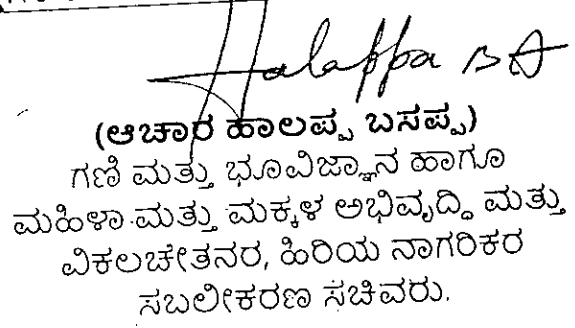 Halappa B A
(ಆಚಾರ ಹಾಲಪ್ಪ ಬಸಪ್ಪ)
ಗಣಿ ಮತ್ತು ಭೂವಿಜ್ಞಾನ ಹಾಗೂ
ಮಹಿಳಾ ಮತ್ತು ಮಕ್ಕಳ ಅಭಿವೃದ್ಧಿ ಮತ್ತು
ವಿಕಲಚೇತನರ, ಹಿರಿಯ ನಾಗರಿಕರ
ಸಬಲೀಕರಣ ಸಚಿವರು.